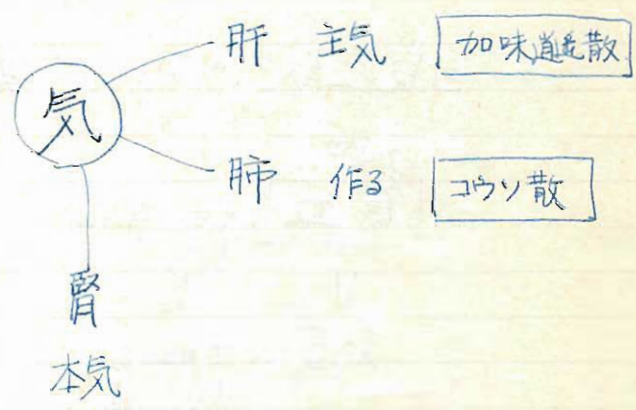 肝 主気 加味逍遙散
気
肺 作る コウソ散
腎
本気